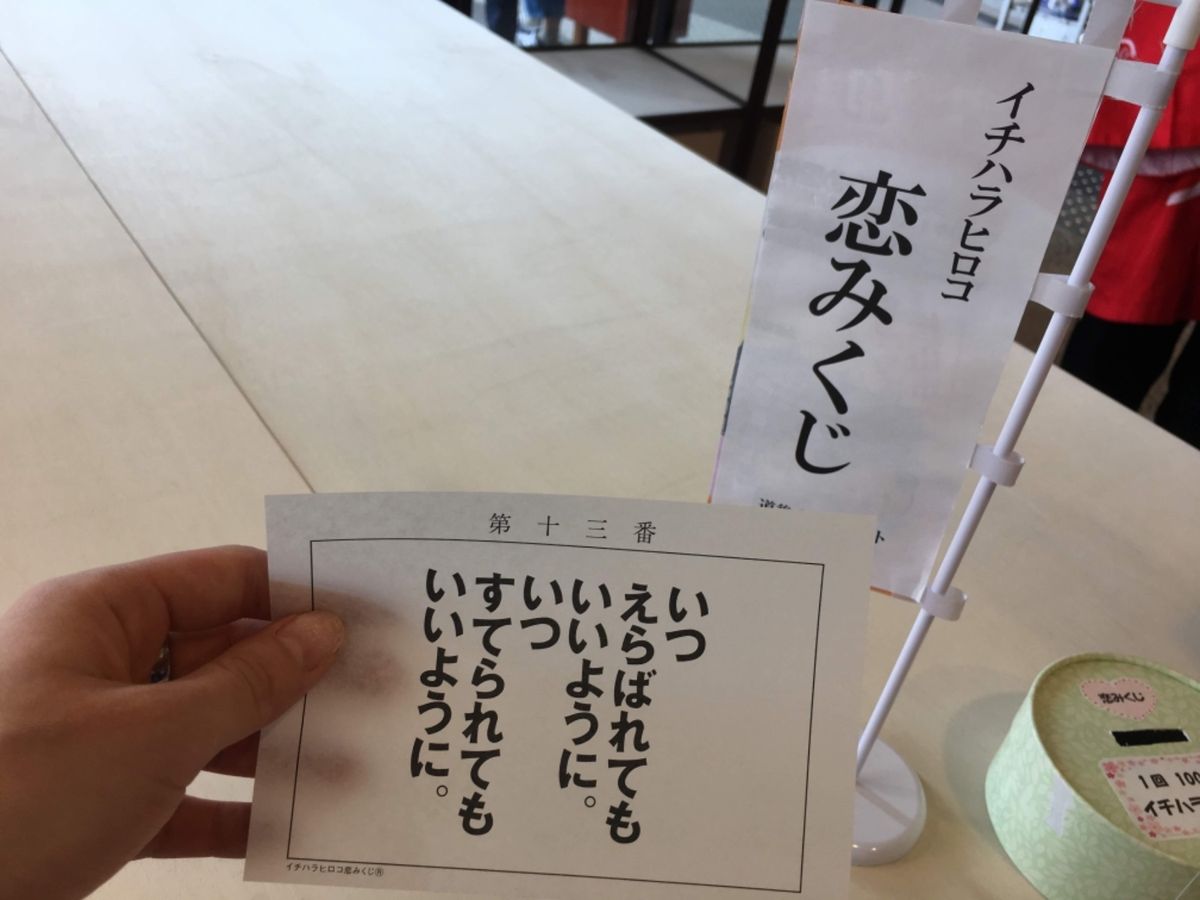 イチハラヒロコ
恋みくじ
第十三番
いつ
えらばれても
いいように。
いつ
すてられても
いいように。
イチハラヒロコ恋みくじ®
恋みくじ
1回 100
イチハラ